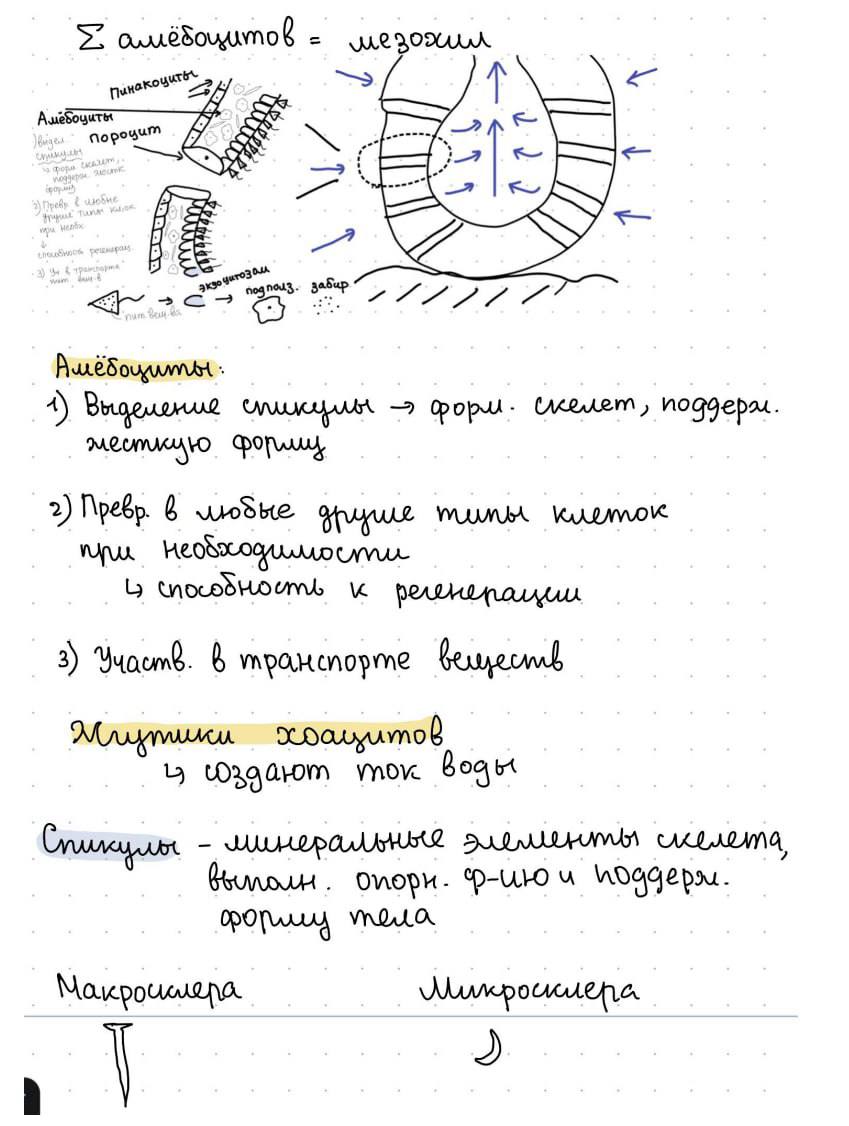 Σ амёбоцитов = мезохил
Пинакоциты
Амёбоциты
Пороцит
1) выдел.
спикулы
↳ форм. скелет,
поддерж. жестк.
форму
2) Превр. в любые
другие типы клеток
при необх.
↓
способность регенерац.
3) Уч. в транспорте
пит. вещ-в
экзоцитозам
подполз. забир.
пит. вещ-ва
Амёбоциты:
1) Выделение спикулы → форм. скелет, поддерж.
жесткую форму
2) Превр. в любые другие типы клеток
при необходимости
↳ способность к регенерации
3) Участв. в транспорте веществ
Жгутики хоацитов
↳ создают ток воды
Спикулы - минеральные элементы скелета,
выполн. опорн. ф-ию и поддерж.
форму тела
Макросклера Микросклера